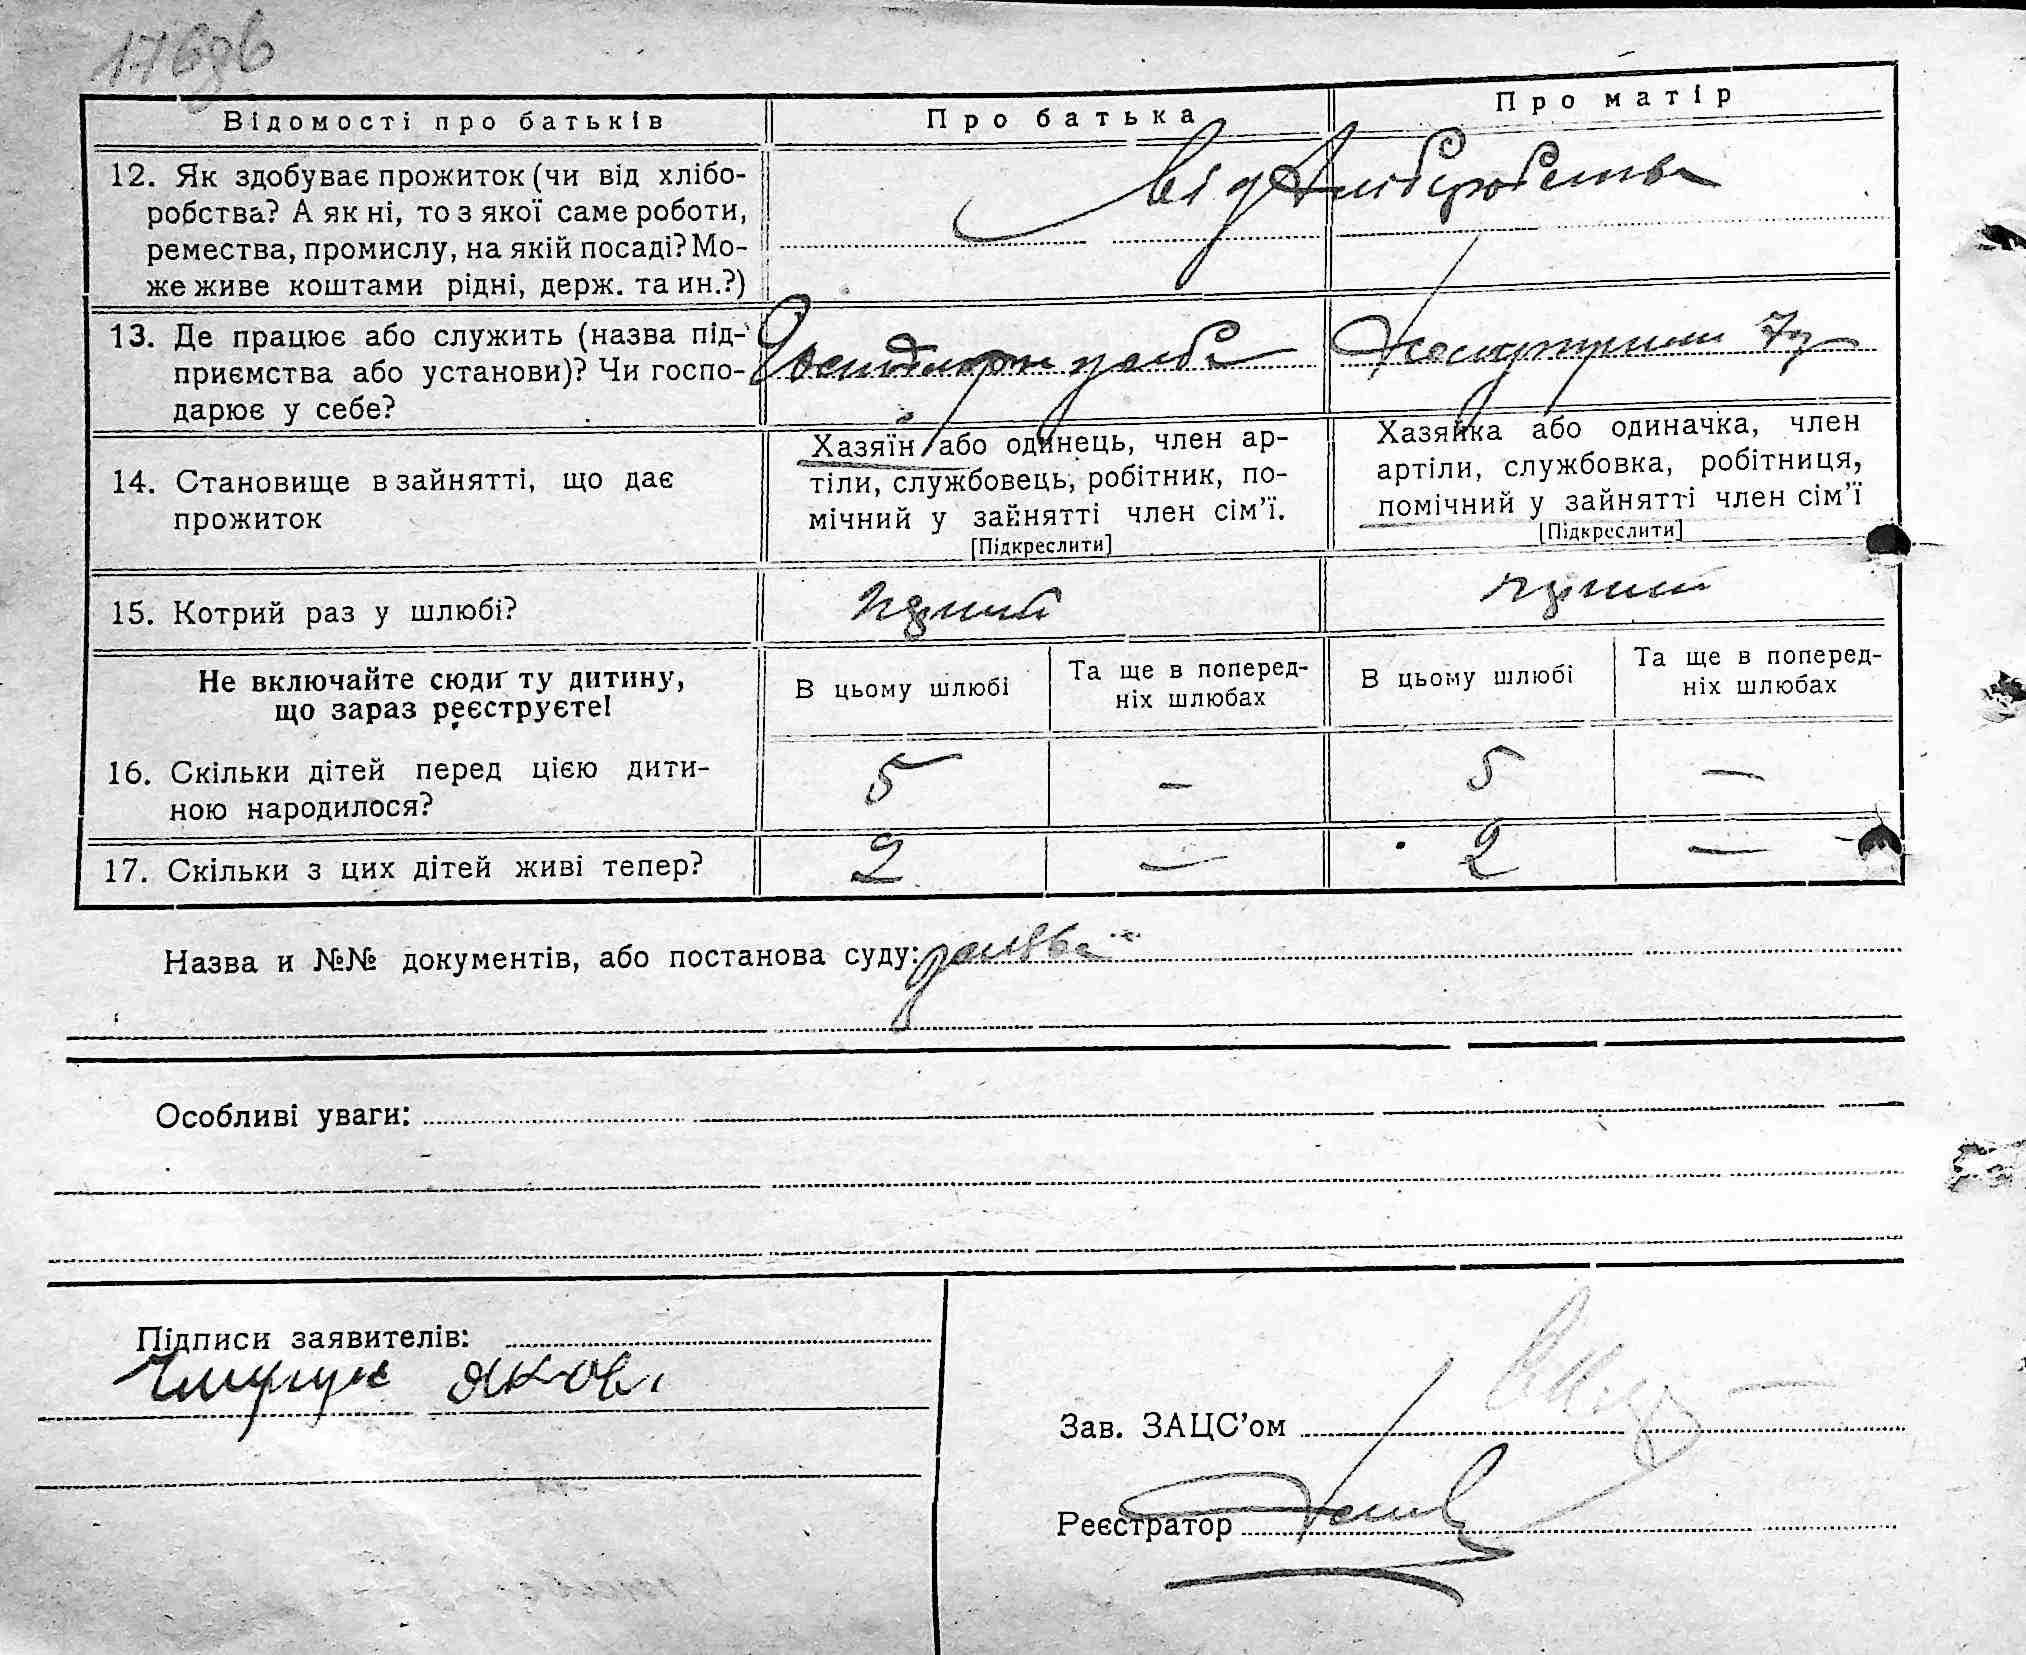 176зв
Відомості про батьків
Про батька
Про матір
12. Як здобуває прожиток (чи від хлібо-
робства? А як ні, то з якої саме роботи,
ремества, промислу, на якій посаді? Мо-
же живе коштами рідні, держ. та ин.?)
від хліборобства
13. Де працює або служить (назва під-
приємства або установи)? Чи госпо-
дарює у себе?
14. Становище в зайнятті, що дає
прожиток
Хазяїн або одинець, член ар-
тіли, службовець, робітник, по-
мічний у зайнятті член сім'ї.
[Підкреслити]
Хазяйка або одиначка, член
артіли, службовка, робітниця,
помічний у зайнятті член сім'ї
[Підкреслити]
15. Котрий раз у шлюбі?
перший
перший
Не включайте сюди ту дитину,
що зараз реєструєте!
В цьому шлюбі
Та ще в поперед-
ніх шлюбах
В цьому шлюбі
Та ще в поперед-
ніх шлюбах
16. Скільки дітей перед цією дити-
ною народилося?
5 — 5 —
17. Скільки з цих дітей живі тепер?
2 — 2 —
Назва и №№ документів, або постанова суду:
Особливі уваги:
Підписи заявителів:
Яков
Зав. ЗАЦС'ом
Реєстратор